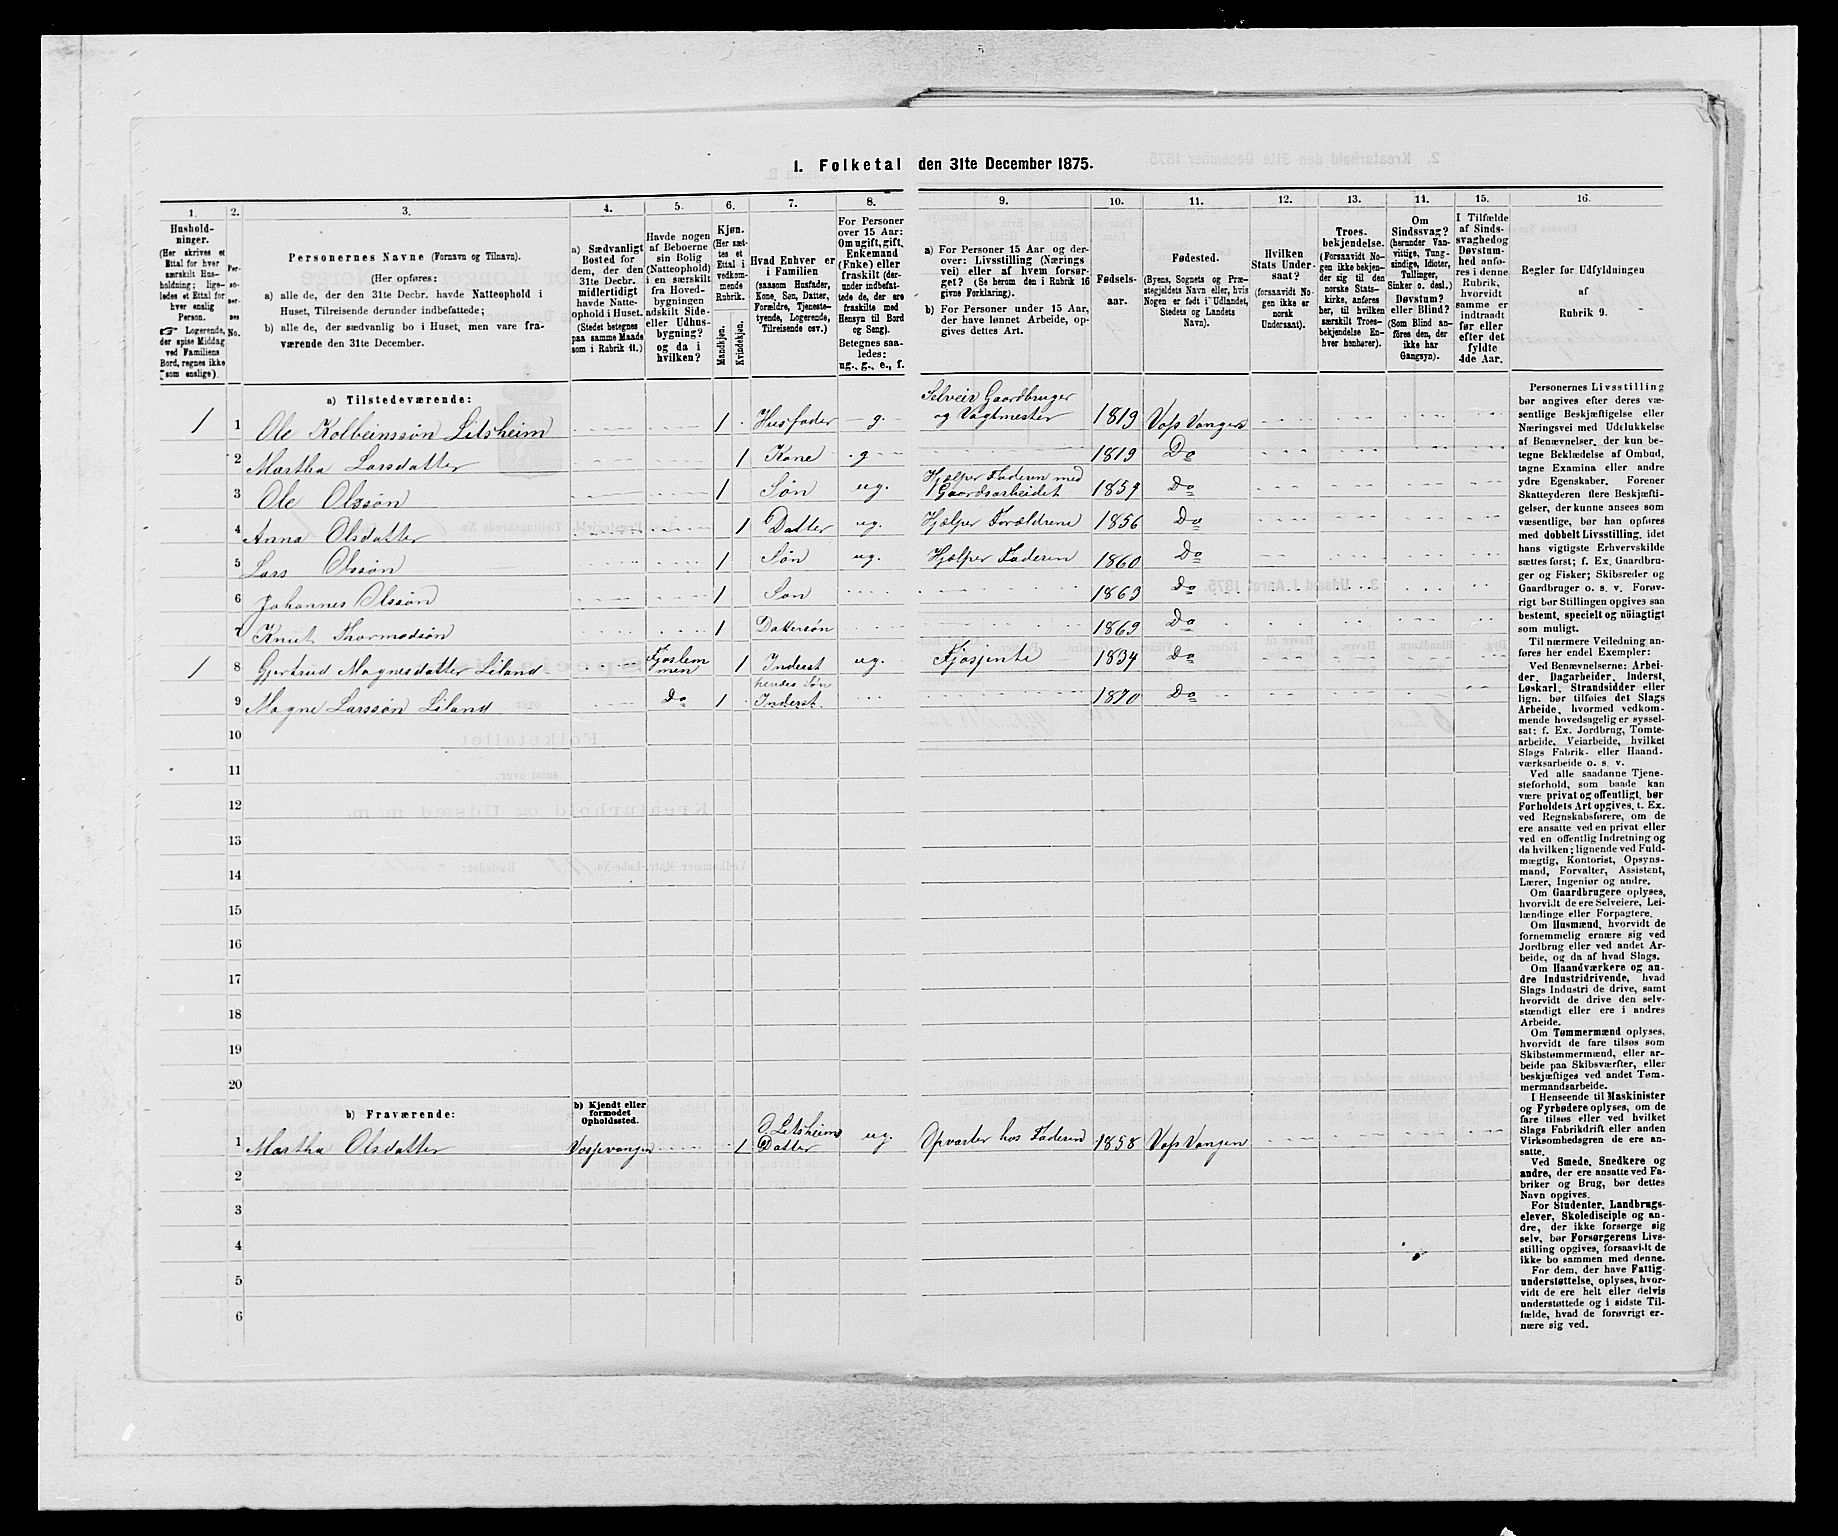 1. Folketal den 31te December 1875.
1.
Hushold-
ninger.
(Her skrives et
Ettal for hver
særskilt Hus-
holdning; lige-
ledes et Ettal for
hver enslig
Person.
☞ Logerende,
der spise Middag
ved Familiens
Bord, regnes ikke
som enslige).
2.
Per-
so-
ner-
nes
No.
3.
Personernes Navne (Fornavn og Tilnavn).
(Her opføres:
a) alle de, der den 31te Decbr. havde Natteophold i
Huset, Tilreisende derunder indbefattede;
b) alle de, der sædvanlig bo i Huset, men vare fra-
værende den 31te December.
4.
a) Sædvanligt
Bosted for
dem, der den
31te Decbr.
midlertidigt
havde Natte-
ophold i Huset.
(Stedet betegnes
paa samme Maade
som i Rubrik 11.)
5.
Havde nogen
af Beboerne
sin Bolig
(Natteophold)
i en særskilt
fra Hoved-
bygningen
adskilt Side-
eller Udhus-
bygning?
og da i
hvilken?
6.
Kjøn.
(Her sæt-
tes et
Ettal i
vedkom-
mende
Rubrik.
Mandkjøn.
Kvindekjøn.
7.
Hvad Enhver er
i Familien
(saasom Husfader,
Kone, Søn, Datter,
Forældre, Tjeneste-
tyende, Logerende,
Tilreisende osv.)
8.
For Personer
over 15 Aar:
Om ugift, gift,
Enkemand
(Enke) eller
fraskilt (der-
under indbefat-
tede de, der ere
fraskilte med
Hensyn til Bord
og Seng).
Betegnes saa-
ledes:
ug., g., e., f.
9.
a) For Personer 15 Aar og der-
over: Livsstilling (Nærings-
vei) eller af hvem forsør-
get? (Se herom den i Rubrik 16
givne Forklaring).
b) For Personer under 15 Aar,
der have lønnet Arbeide, op-
gives dettes Art.
10.
Fødsels-
aar.
11.
Fødested.
(Byens, Sognets og Præ-
stegjeldets Navn eller, hvis
Nogen er født i Udlandet,
Stedets og Landets
Navn).
12.
Hvilken
Stats Under-
saat?
(forsaavidt No-
gen ikke er
norsk
Undersaat).
13.
Troes-
bekjendelse.
(Forsaavidt No-
gen ikke bekjen-
der sig til den
norske Stats-
kirke, anføres
her, til hvilken
særskilt Troes-
bekjendelse En-
hver henhører).
14.
Om
Sindssvag?
(herunder Van-
vittige, Tung-
sindige, Idioter,
Tullinger,
Sinker o. desl.)
Døvstum?
eller Blind?
(Som Blind an-
føres den, der
ikke har
Gangsyn).
15.
I Tilfælde
af Sinds-
svaghed og
Døvstum-
hed anfø-
res i denne
Rubrik,
hvorvidt
samme er
indtraadt
før eller
efter det
fyldte
4de Aar.
16.
Regler for Udfyldningen
af
Rubrik 9.
a) Tilstedeværende:
1 1 Ole Kolbeinssøn Litsheim 1 Husfader g. Selveir Gaardbruger og Vagtmester 1819 Voss Vangen
2 Martha Larsdatter 1 Kone g 1819 Do
3 Ole Olssøn 1 Søn ug. Hjælper Faderen med Gaardsarbeidet 1854 Do
4 Anna Olsdatter 1 Datter ug. Hjælper Forældrene 1856 Do
5 Lars Olssøn 1 Søn ug. Hjælper Faderen 1860 Do
6 Johannes Olssøn 1 Søn 1863 Do
7 Knut Thormodsøn 1 Dattersøn 1869 Do
1 8 Gjertrud Magnesdatter Liland Fjoslemmen 1 Inderst ug. Fjosjente 1834 Do
9 Magne Larssøn Liland Do 1 hendes Søn Inderst 1870 Do
10
11
12
13
14
15
16
17
18
19
20
b) Fraværende:
b) Kjendt eller
formodet
Opholdssted.
1 Martha Olsdatter Vossevangen 1 O. Litsheims Datter ug. Opvarter hos Faderen 1858 Voss Vangen
2
3
4
5
6
Personernes Livsstilling
bør angives efter deres væ-
sentlige Beskjæftigelse eller
Næringsvei med Udelukkelse
af Benævnelser, der kun be-
tegne Beklædelse af Ombud,
tagne Examina eller andre
ydre Egenskaber. Forener
Skatteyderen flere Beskjæfti-
gelser, der kunne ansees som
væsentlige, bør han opføres
med dobbelt Livsstilling, idet
hans vigtigste Erhvervskilde
sættes først; f. Ex. Gaardbru-
ger og Fisker; Skibsreder og
Gaardbruger o. s. v. Forøv-
rigt bør Stillingen opgives saa
bestemt, specielt og nöiagtigt
som muligt.
Til nærmere Veiledning an-
føres her endel Exempler:
Ved Benævnelserne: Arbei-
der, Dagarbeider, Inderst,
Løskarl, Strandsidder eller
lign. bør tilføies det Slags
Arbeide, hvormed vedkom-
mende hovedsagelig er syssel-
sat; f. Ex. Jordbrug, Tomte-
arbeide, Veiarbeide, hvilket
Slags Fabrik- eller Haand-
værksarbeide o. s. v.
Ved alle saadanne Tjene-
steforhold, som baade kan
være privat og offentligt, bør
Forholdets Art opgives, t. Ex.
ved Regnskabsførere, om de
ere ansatte ved en privat eller
ved en offentlig Indretning og
da hvilken; lignende ved Fuld-
mægtig, Kontorist, Opsyns-
mand, Forvalter, Assistent,
Lærer, Ingeniør og andre.
Om Gaardbrugere oplyses,
hvorvidt de ere Selveiere, Lei-
lændinge eller Forpagtere.
Om Husmænd, hvorvidt de
fornemmelig ernære sig ved
Jordbrug eller ved andet Ar-
beide, og da af hvad Slags.
Om Haandværkere og an-
dre Industridrivende, hvad
Slags Industri de drive, samt
hvorvidt de drive den selv-
stændigt eller ere i andres
Arbeide.
Om Tømmermænd oplyses,
hvorvidt de fare tilsøs som
Skibstømmermænd, eller ar-
beide paa Skibsværfter, eller
beskjæftiges ved andet Tøm-
mermandsarbeide.
I Henseende til Maskinister
og Fyrbødere oplyses, om de
fare tilsøs eller ved hvilket
Slags Fabrikdrift eller anden
Virksomhedsgren de ere an-
satte.
Ved Smede, Snedkere og
andre, der ere ansatte ved Fa-
briker og Brug, bør dettes
Navn opgives.
For Studenter, Landbrugs-
elever, Skoledisciple og an-
dre, der ikke forsørge sig
selv, bør Forsørgerens Livs-
stilling opgives, forsaavidt de
ikke bo sammen med denne.
For dem, der have Fattig-
understøttelse, oplyses, hvor-
vidt de ere helt eller delvis
understøttede og i sidste Til-
fælde, hvad de forøvrigt er-
nære sig ved.